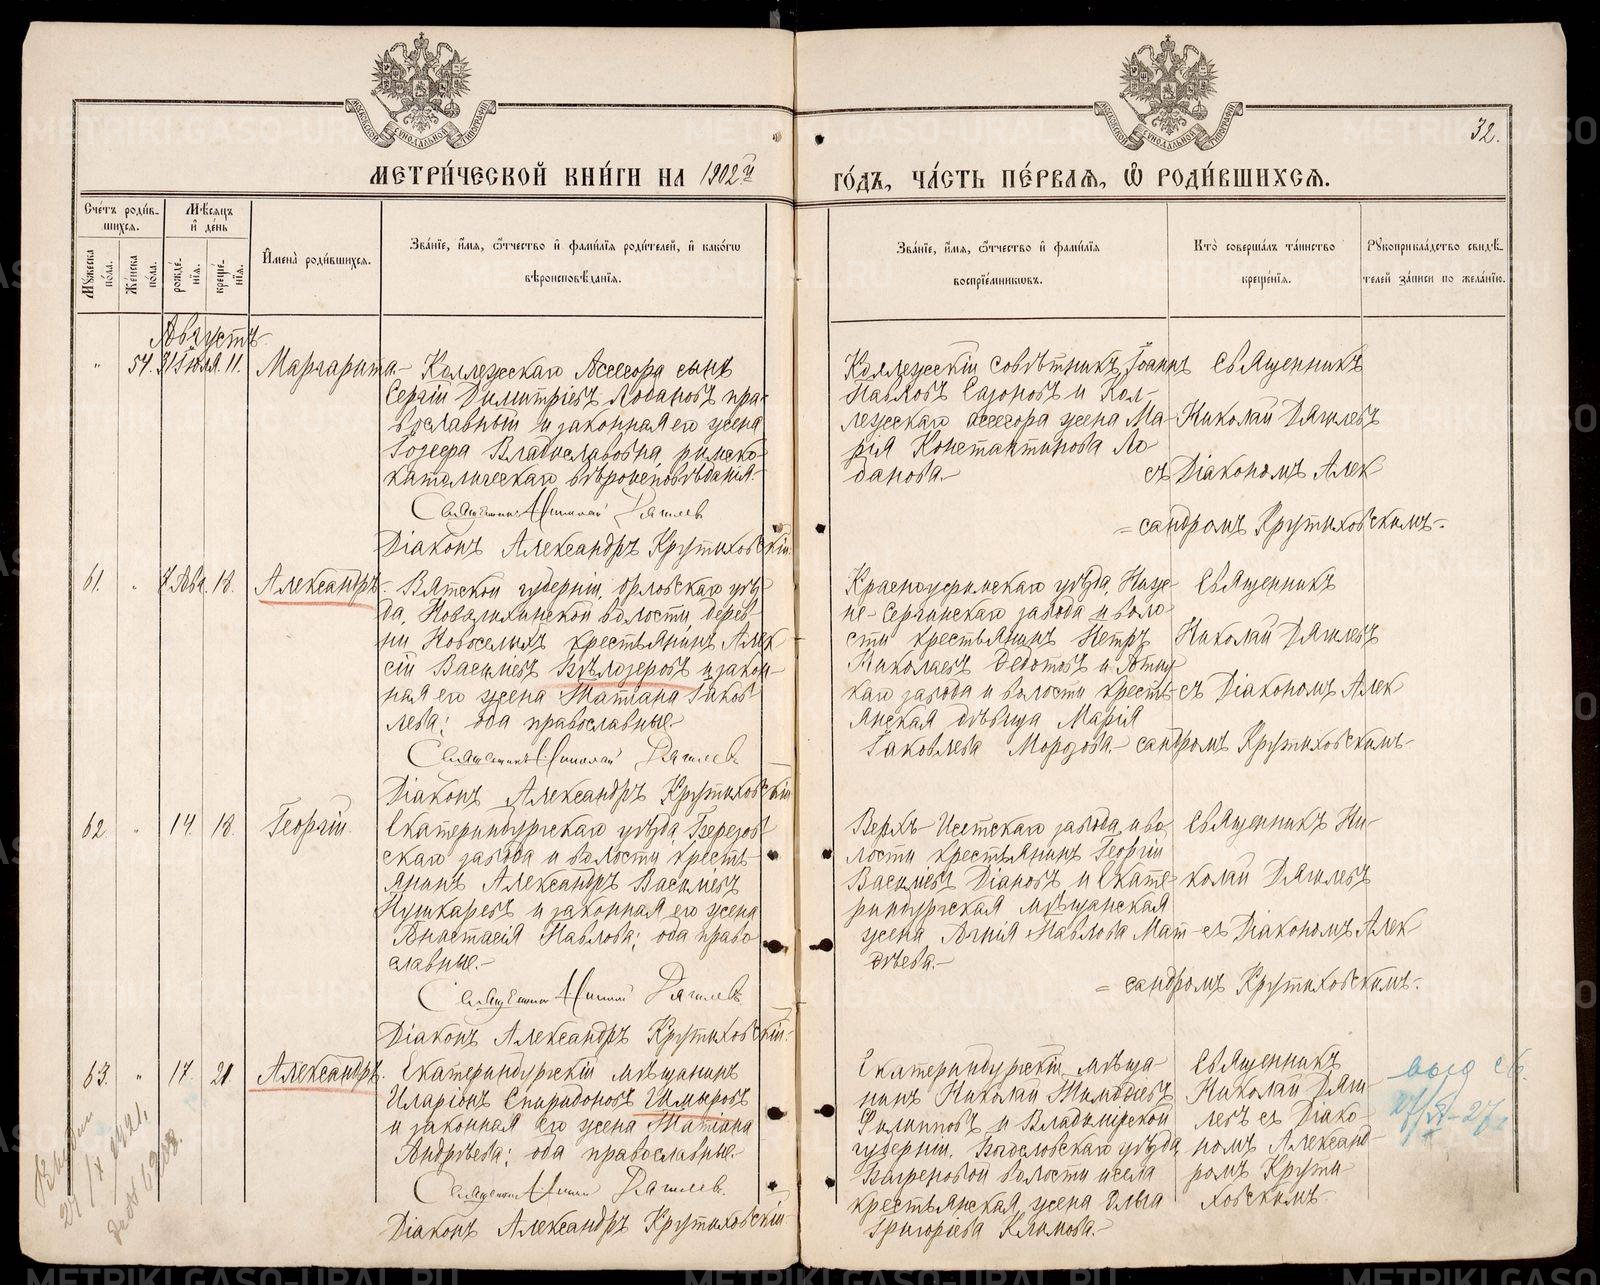 32.
МЕТРИ́ЧЕСКОЙ КНИ́ГИ НА 1902й
ГО́ДЪ, ЧА́СТЬ ПЕ́РВАЯ, Ѡ РОДИ́ВШИХСЯ.
Сче́тъ роди́в-
шихся.
Мѣ́сяцъ
и҆ де́нь
Мꙋ́жеска
по́ла.
Же́нска
по́ла.
рожде́-
нїя.
креще́-
нїя.
И҆мена̀ роди́вшихся.
Зва́нїе, и҆́мя, ѻ҆́тчество и҆ фами́лїя роди́телей, и҆ како́гѡ
вѣроисповѣ́данїя.
Зва́нїе, и҆́мя, ѻ҆́тчество и҆ фами́лїя
воспрїе́мникѡвъ.
Кто̀ соверша́лъ та́инство
креще́нїя.
Рꙋкоприкла́дство свидѣ́-
телей за́писи по жела́нїю.
Августъ
„ 54. 31 Іюля. 11. Маргарита.-
Коллежскаго Ассесора сынъ
Сергій Димитріевъ Лобановъ пра-
вославный и законная его жена
Владиславовна римско
католическаго вѣроисповѣданія.-
Священникъ Николай Дягилев
Діаконъ Александръ Крутиховскій.
Коллежскій совѣтникъ Іоаннъ
Павловъ Сазоновъ и Кол-
лежскаго ассесора жена Ма-
рія Константинова Ло
банова.-
Священникъ
Николай Дягилевъ
съ Діакономъ Алек
= сандромъ Крутиховскимъ.-
61. „ 7 Авг. 18. Александръ.-
Вятской губерніи, Орловскаго уѣз-
да, волости, дерев-
ни Новоселихъ крестьянинъ Алек
сій Васильевъ Бѣлозеровъ и закон-
ная его жена Татіана Іаков
лева; оба православные.-
Священникъ Николай Дягилевъ
Діаконъ Александръ Крутиховскій
Красноуфимскаго уѣзда, Ниж-
не-Сергинскаго завода и воло
сти крестьянинъ Петръ
Николаевъ и
каго завода и волости кресть-
янская дѣвица Марія
Іаковлева
Священникъ
Николай Дягилевъ
съ Діакономъ Алек
сандромъ Крутиховскимъ.-
62. „ 14. 18. Георгій.
Екатеринбургскаго уѣзда, Березов
скаго завода и волости кресть-
янинъ Александръ Васильевъ
Пушкаревъ и законная его жена
Анастасія Павлова; оба право
славные.-
Священникъ Николай Дягилевъ
Діаконъ Александръ Крутиховскій.
Верхъ-Исетскаго завода и во
лости крестьянинъ Георгій
Васильевъ Діановъ и Екате-
ринбургская мѣщанская
жена Агнія Павлова Мат-
вѣева.-
Священникъ Ни-
колай Дягилевъ
съ Діакономъ Алек
= сандромъ Крутиховскимъ.-
63. „ 17. 21. Александръ.
Екатеринбургскій мѣщанинъ
Иларіонъ Спиридоновъ
и законная его жена Татіана
Андрѣева; оба православные.-
Священникъ Николай Дягилев.
Діаконъ Александръ Крутиховскій
Екатеринбургскій мѣща-
нинъ Николай Тимофѣевъ
Филипповъ и Владимірской
губерніи,
волости и села
крестьянская жена Ольга
Григоріева Климова.-
Священникъ
Николай Дяги-
левъ съ Діако-
номъ Александ-
ромъ Крути-
ховскимъ.-